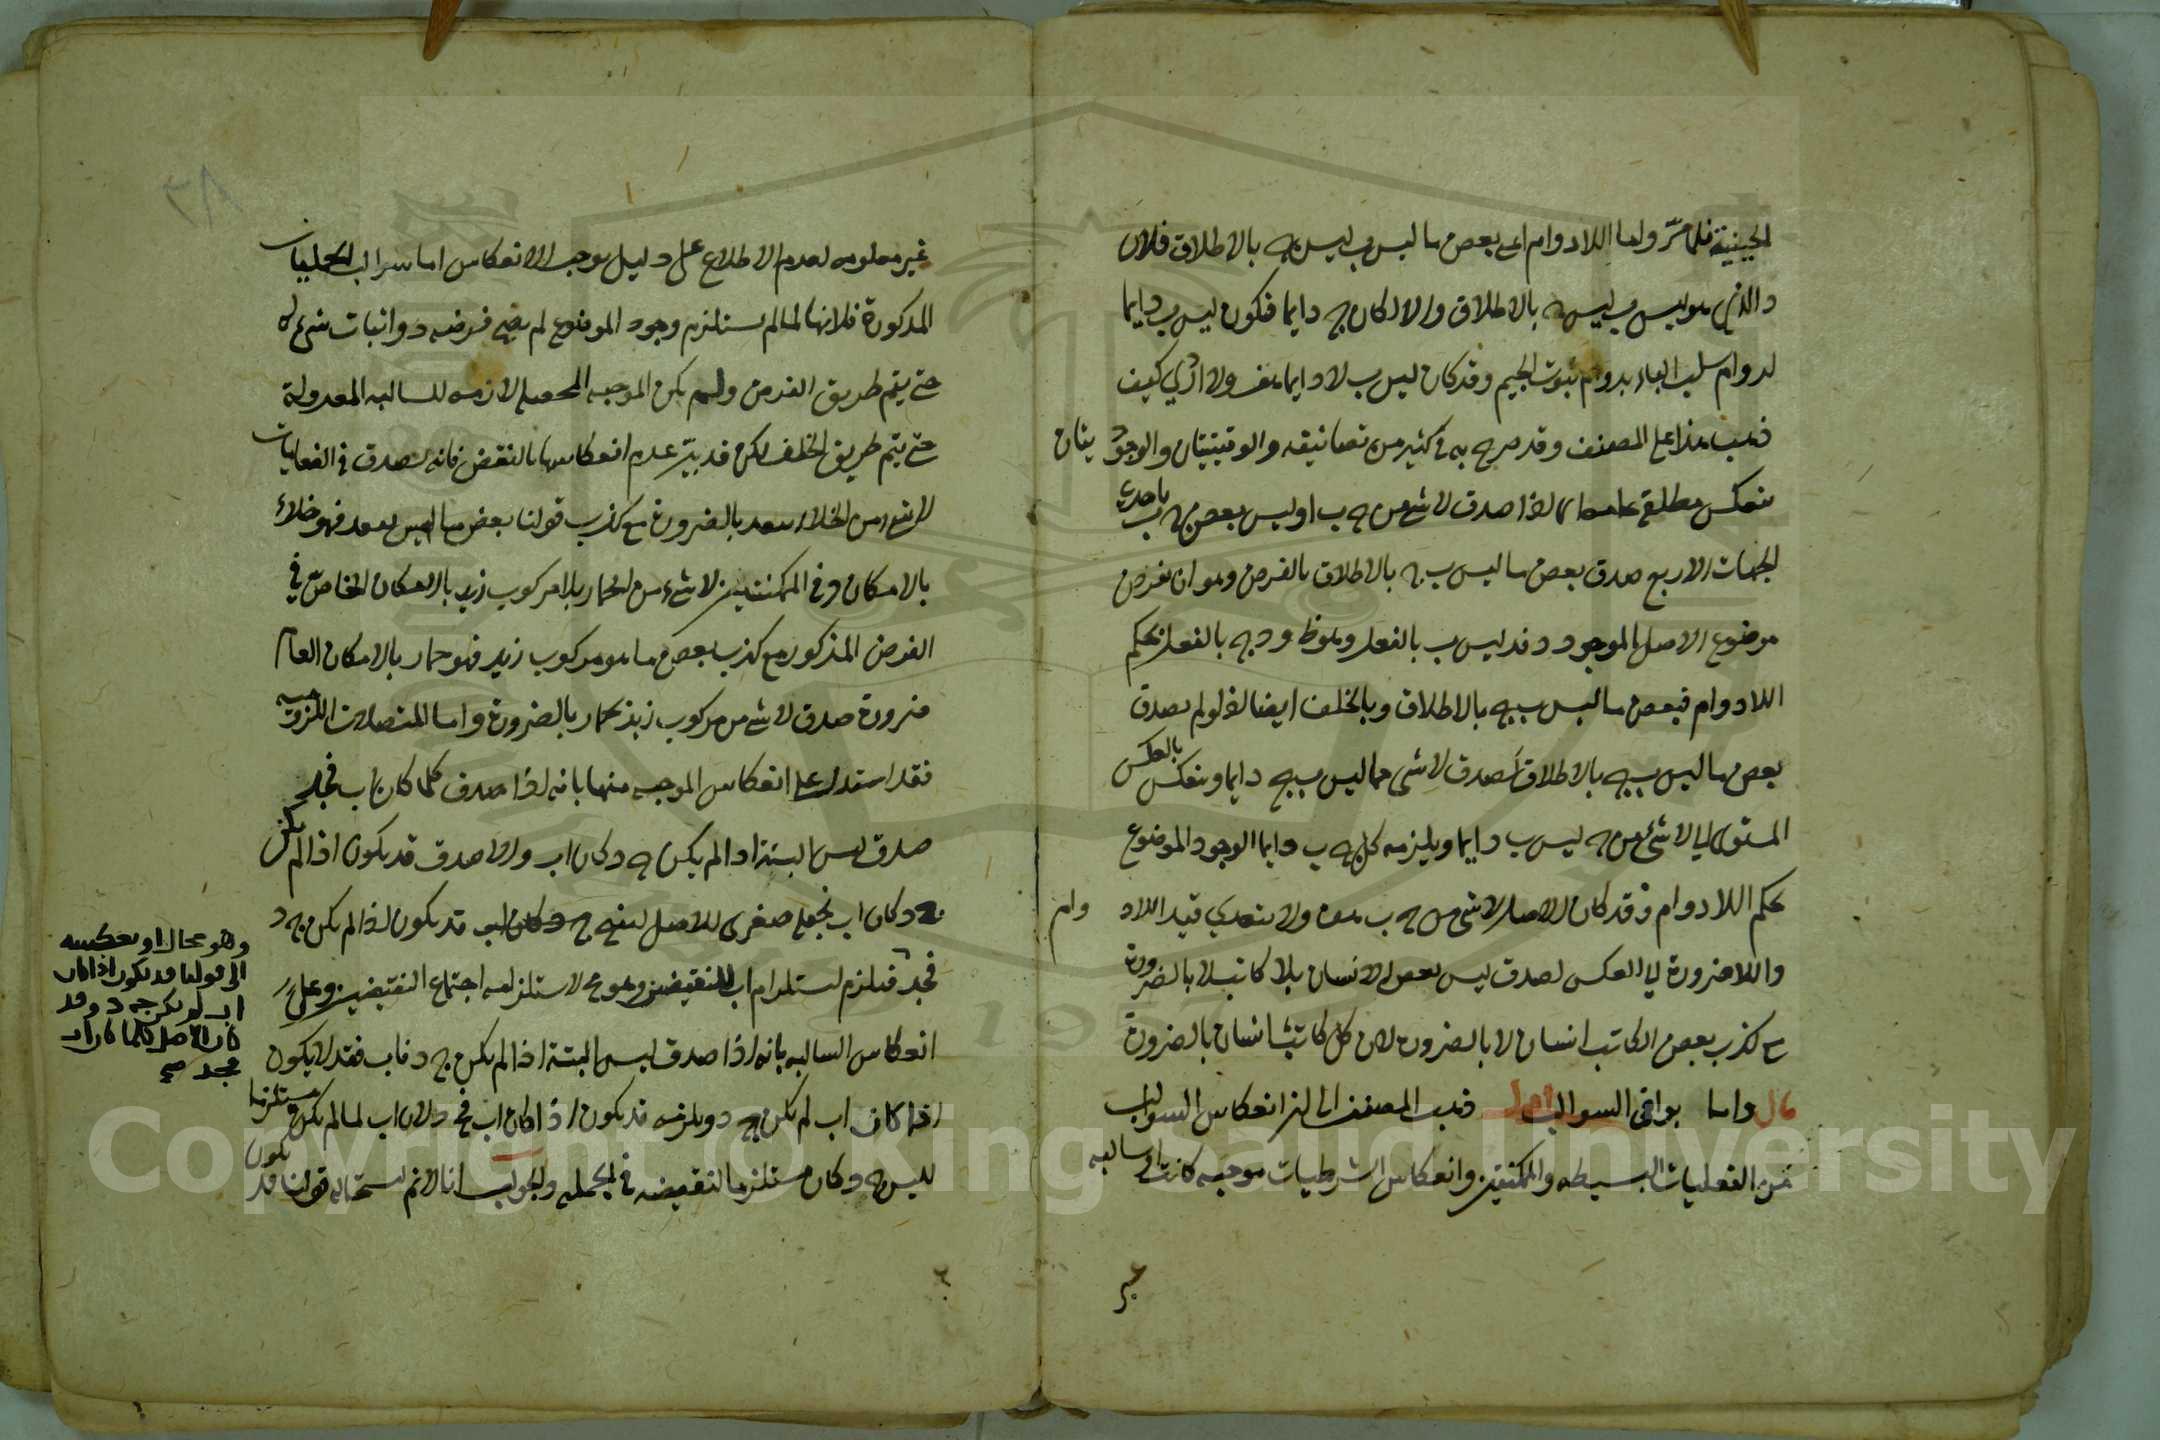 الحينية فلما مر واما اللادوام اعني بعض ما ليس ب ليس ج بالاطلاق فلان
د الذي هو ليس ب ليس ج بالاطلاق والا لكان ج دايما فيكون ليس ب دايما
لدوام سلب الباء بدوام ثبوت الجيم وقد كان ليس ب لا دايما هف ولا ادري كيف
ذهب هذا على المصنف وقد صرح به في كثير من تصانيفه والوقتيتان والوجوديتان
تنعكس مطلقة عامة لانه اذا صدق لا شي من ج ب او ليس بعض ج ب باحدى
الجهات الاربع صدق بعض ما ليس ب ج بالاطلاق بالفرض وهو ان نفرض
موضوع الاصل الموجود د فد ليس ب بالفعل وهو ظ ود ج بالفعل بحكم
اللادوام فبعض ما ليس ب ج بالاطلاق وبالخلف ايضا اذ لو لم يصدق
بعض ما ليس ب ج بالاطلاق لصدق لا شي مما ليس ب ج دايما وينعكس بالعكس
المستوي الي لا شئ من ج ليس ب دايما ويلزمه كل ج ب دايما لوجود الموضوع
بحكم اللادوام وقد كان الاصل لا شي من ج ب هف ولا يتعدي قيد اللادوام
واللاضرورة الي العكس لصدق ليس بعض الانسان بلا كاتب لا بالضرورة
مع كذب بعض الكاتب انسان لا بالضرورة لان كل كاتب انسان بالضرورة
قال واما بواقي السوالب اقول ذهب المصنف الى ان انعكاس السوالب
من الفعليات البسيطه والممكنتين وانعكاس الشرطيات موجبه كانت او سالبه
غير معلومه لعدم الاطلاع على دليل يوجب الانعكاس اما سوالب الحمليات
المذكورة فلانها لما لم يستلزم وجود الموضوع لم يصح فرضه د واثبات شئ له
حتى يتم طريق الفرض ولم يكن الموجبه المحصله لازمه للسالبه المعدولة
حتى يتم طريق الخلف لكن قد تبين عدم انعكاسها بالنقض فانه يصدق في الفعليات
لا شئ من الخلاء ببعد بالضرورة مع كذب قولنا بعض ما ليس ببعد فهو خلاء
بالامكان وفي الممكنتين لا شئ من الحمار بلا مركوب زيد بالامكان الخاص في
الفرض المذكور مع كذب بعض ما هو مركوب زيد فهو حمار بالامكان العام
ضرورة صدق لا شي من مركوب زيد بحمار بالضرورة واما المتصلات اللزوميه
فقد استدل على انعكاس الموجبه منها بانه اذا صدق كلما كان اب فجد
صدق ليس البتة اذا لم يكن ج د كان اب والا صدق قد يكون اذا لم يكن
ج د كان اب نجعله صغرى للاصل لينتج قد يكون اذا لم يكن ج د
فجد فيلزم استلزام اب للنقيضين وهو مح لاستلزامه اجتماع النقيضين وعلى
انعكاس السالبه بانه اذا صدق ليس البتة اذا لم يكن ج د فاب فقد لا يكون
اذا كان اب لم يكن ج د ويلزمه قد يكون اذا كان اب فج د لان اب لما لم يكن مستلزما
لليس ج د كان مستلزما لنقيضه في الجمله والجواب انا لانم استحاله قولنا قد يكون
وهو محال او بعكسه
الى قولنا قد يكون اذا كان
اب لم يكن ج د وقد
كان الاصل كلما كان اب
فجد صح